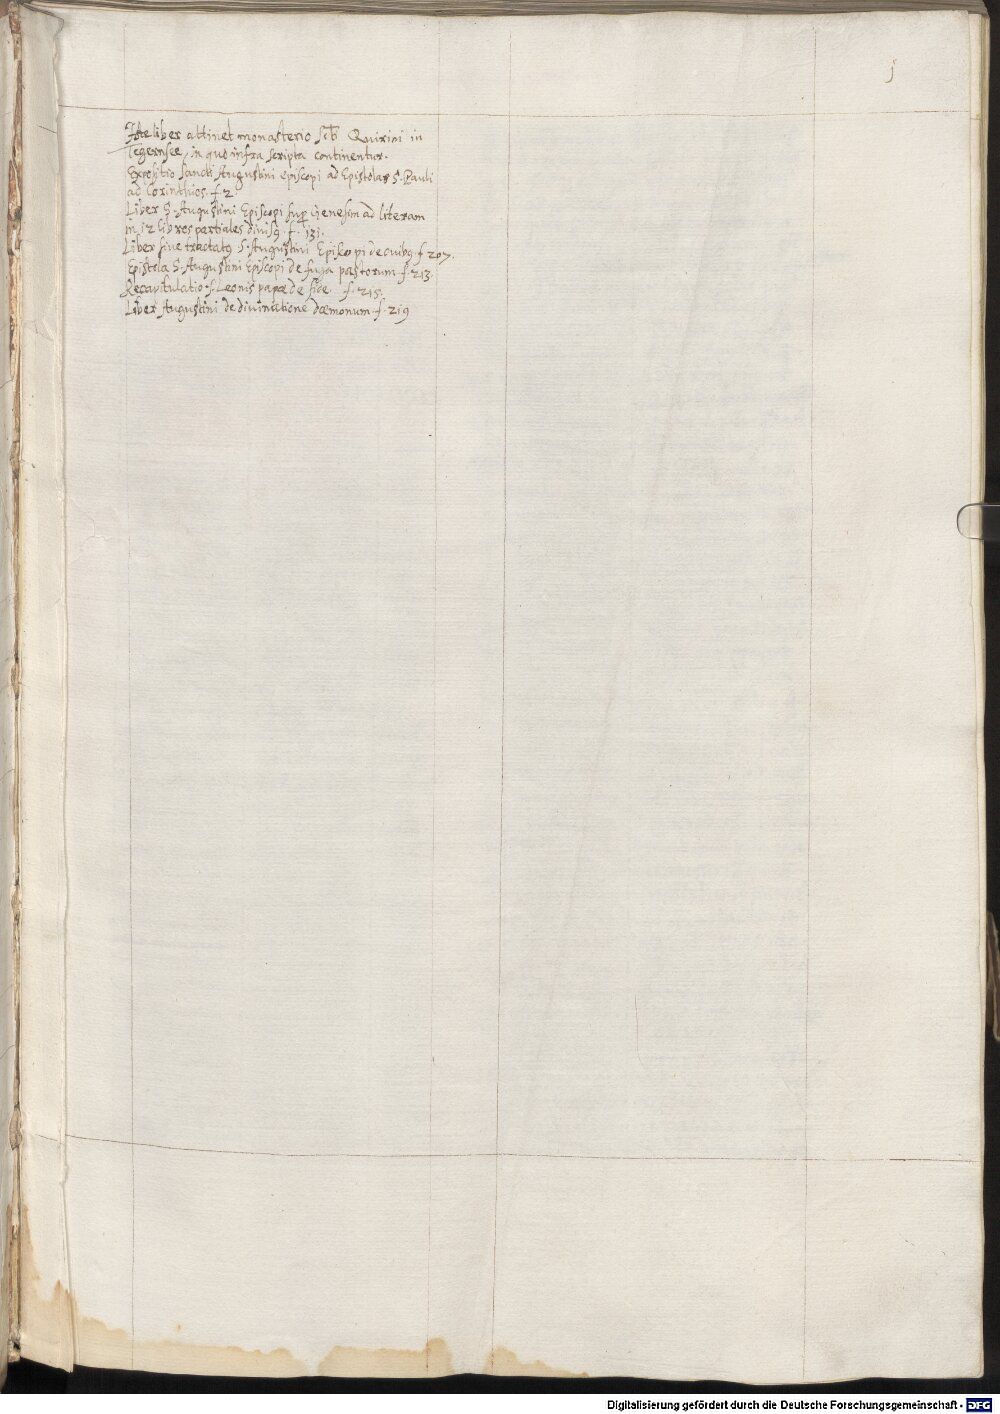 1
Iste liber attinet monasterio Scti Quirini in
Tegernsee, in quo infra scripta continentur.
Expositio sancti Augustini episcopi ad Epistolas S. Pauli
ad Corinthios. f. 2
Liber S. Augustini Episcopi sup genesim ad literam
in 12 libros partiales divisq f. 131.
Liber sive tractatq S. Augustini Episcopi de ovibq f. 207.
Epistola S. Augustini Episcopi de fuga pastorum f. 213.
Recapitulatio S. Leonis papae de fide. f. 215.
Liber Augustini de divinatione daemonum f. 219
Digitalisierung gefördert durch die Deutsche Forschungsgemeinschaft - DFG